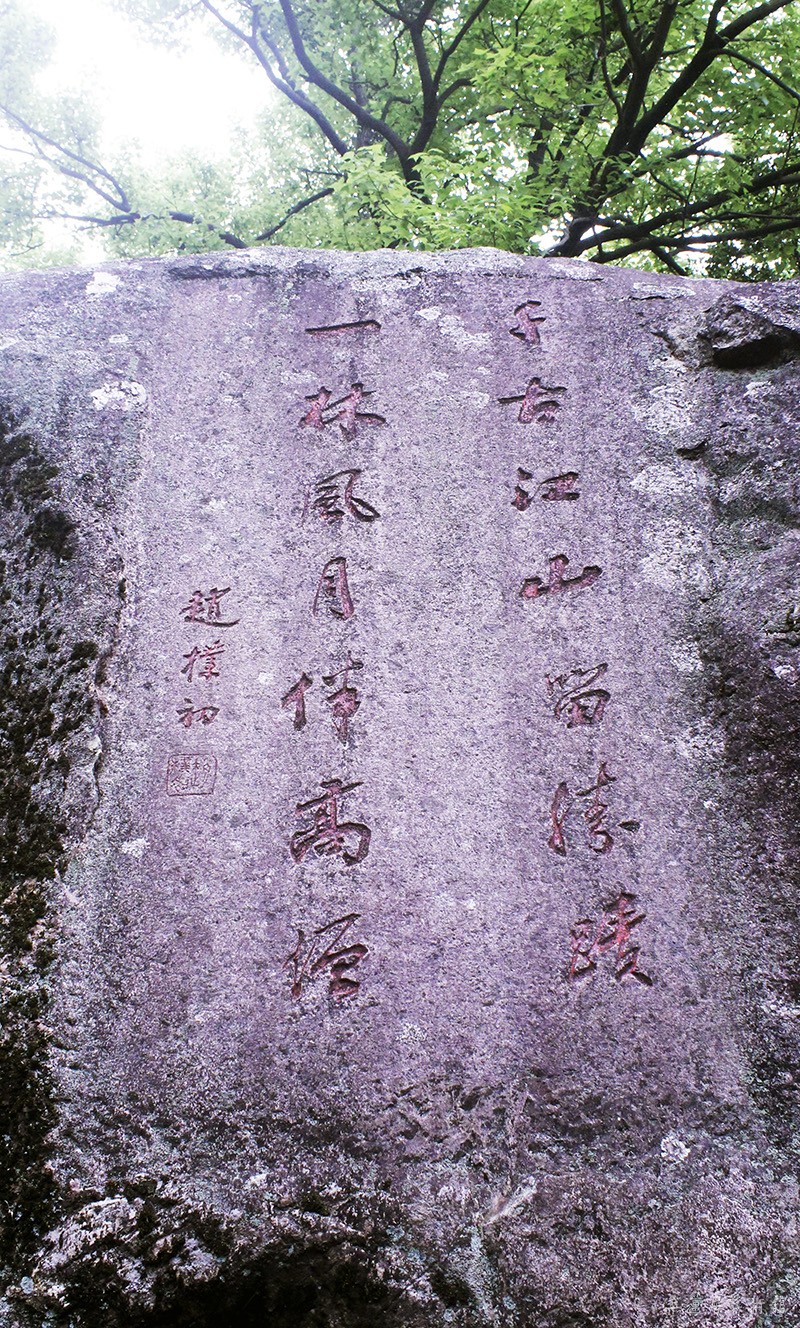 千古江山留勝蹟
一林風月伴高僧
趙樸初